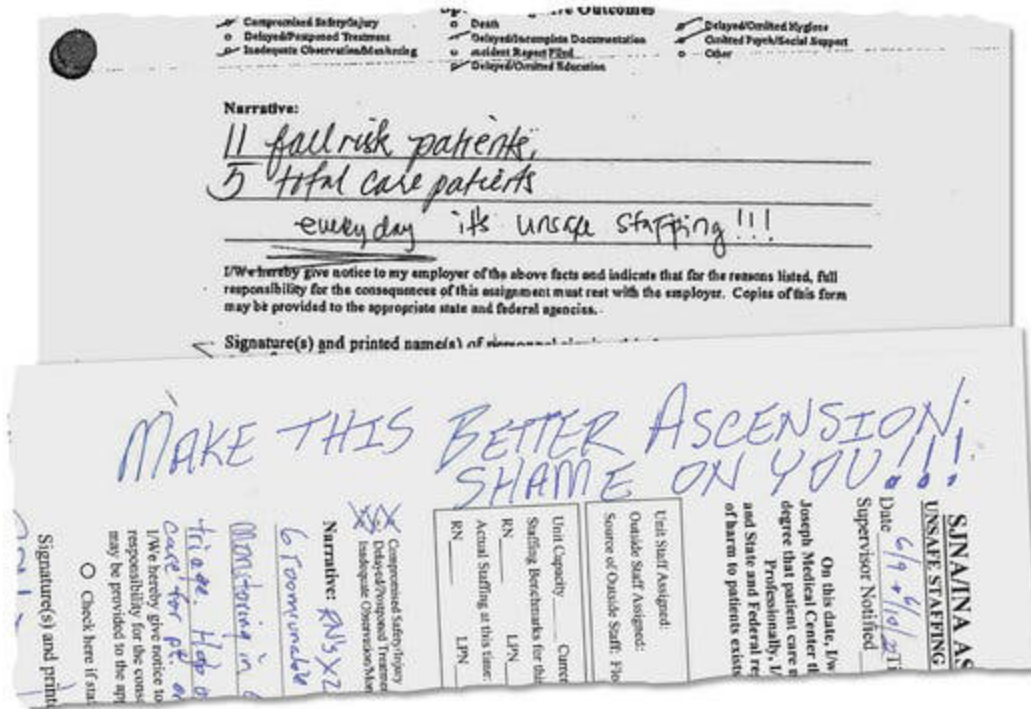 Outcomes
Compromised Safety/Injury
o Death
Delayed/Omitted Hygiene
o Delayed/Postponed Treatment
Delayed/Incomplete Documentation
Omitted Psych/Social Support
Inadequate Observation/Monitoring
o Incident Report Filed
o Other
Delayed/Omitted Education
Narrative:
11 fall risk patients,
5 total care patients
everyday it's unsafe staffing!!!
I/We hereby give notice to my employer of the above facts and indicate that for the reasons listed, full
responsibility for the consequences of this assignment must rest with the employer. Copies of this form
may be provided to the appropriate state and federal agencies.
Signature(s) and printed name(s) of personnel
MAKE THIS BETTER ASCENSION.
SHAME ON YOU!!!
SJNA/INA AS
UNSAFE STAFFING
Date 6/9 + 6/10/2
Supervisor Notified
On this date, I/w
Joseph Medical Center th
degree that patient care n
Professionally, I/
and State and Federal re
of harm to patients exists
Unit Staff Assigned:
Outside Staff Assigned:
Source of Outside Staff: Flo
Unit Capacity Curre
Staffing Benchmarks for this
RN LPN
Actual Staffing at this time:
RN LPN
Compromised Safety/Injury
Delayed/Postponed Treatmen
Inadequate Observation/Mon
Narrative: RN's X2
6 rooms
Monitoring in
triage.
care for pt.
I/We hereby give notice to
responsibility for the cons
may be provided to the app
O Check here if stat
Signature(s) and printe